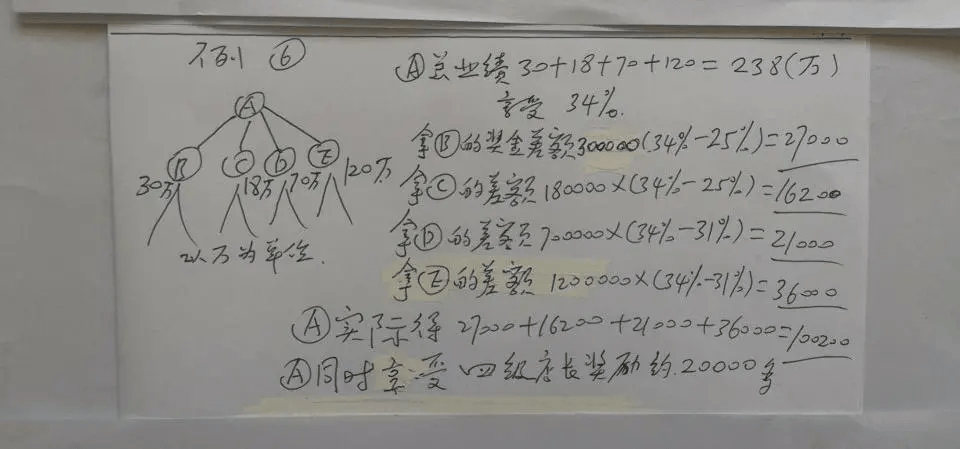 例 ⑥
Ⓐ总业绩 30+18+70+120=238(万)
享受 34%.
Ⓐ
Ⓑ Ⓒ Ⓓ Ⓔ
30万 18万 70万 120万
以万为单位.
拿Ⓑ的奖金差额300000(34%-25%)=27000
拿Ⓒ的差额180000×(34%-25%)=16200
拿Ⓓ的差额700000×(34%-31%)=21000
拿Ⓔ的差额1200000×(34%-31%)=36000
Ⓐ实际得 27000+16200+21000+36000=100200
Ⓐ同时享受四级店长奖励约.20000多